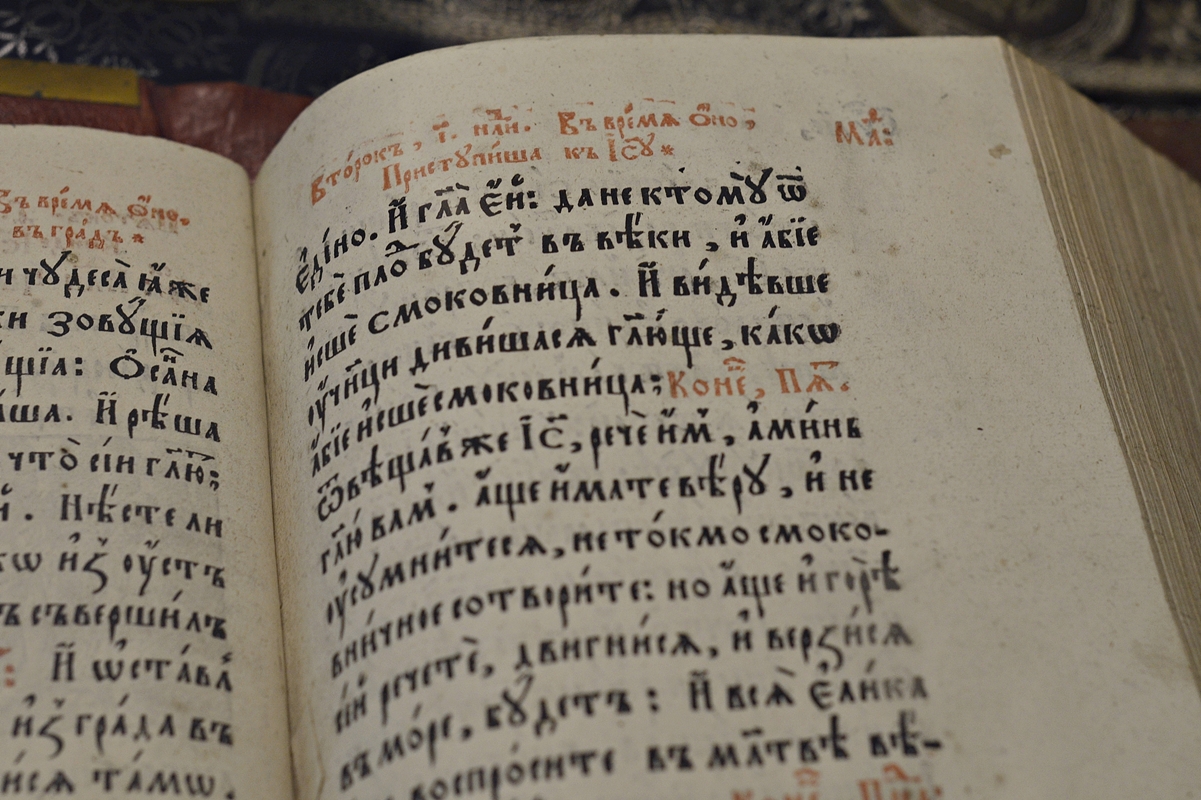 въ времѧ ѻ҆́но,
въ гра́дъ *
и чꙋдеса̀ ꙗ҆́же
ки зовꙋ́щїѧ
щїа: Ѻ҆са́нна
ша. И҆ рѣ́ша
что̀ сі́и гл҃ю;
Нѣ́сте ли
кѡ и҆з̾ ᲂу҆́стъ
ъ съверши́лъ
И҆ ѡ҆ста́вль
и҆з̾ гра́да въ
и́сѧ та́мѡ.
Вто́рокъ, і҃. нлⷣи. Въ вре́мѧ ѻ҆́но,
Пристꙋпи́ша къ І҆с҃ꙋ *
Мⷴѳ:
є҆ди́но. И҆ гл҃а є҆́й: да не ктомꙋ̀ ѿ
тебѐ плоⷣ бꙋ́детъ въ вѣ́ки, и҆ а҆́бїе
и҆́сше смоко́вница. И҆ ви́дѣвше
ᲂу҆чн҃цы диви́шасѧ гл҃ю́ще, ка́кѡ
а҆́бїе и҆́сше смоко́вница; Конеⷰ҇, Пѧⷦ҇.
Ѿвѣща́въ же І҆с҃, речѐ и҆̀мъ, а҆ми́нь
гл҃ю ва́мъ. а҆́ще и҆́мате вѣ́рꙋ, и҆ не
ᲂу҆сꙋмни́тесѧ, не то́кмо смоко-
вни́чное сотвори́те: но а҆́ще и҆ горѣ̀
се́й рече́те, дви́гнисѧ, и҆ ве́рзисѧ
въ мо́ре, бꙋ́детъ: И҆ всѧ̀ є҆ли́ка
воспро́сите въ мл҃твѣ вѣ́-